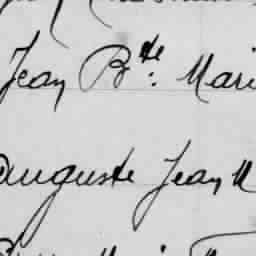 Jean Bte: Mari
Auguste Jean M